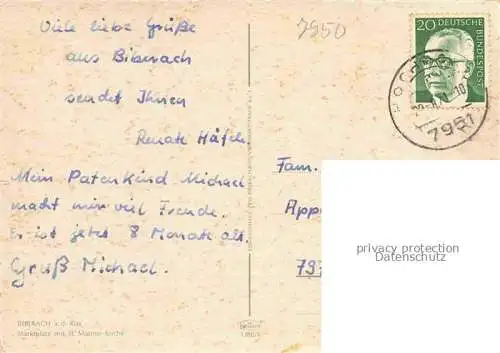 Viele liebe Grüße
aus Biberach
sendet Ihnen
Renate
Mein Patenkind Michael
macht mir viel Freude.
Er ist jetzt 8 Monate alt.
Gruß Michael.
BIBERACH a. d. Riss
Marktplatz mit St. Martins-Kirche
7950
20 DEUTSCHE
BUNDESPOST
7951
Fam.
App
797
privacy protection
Datenschutz